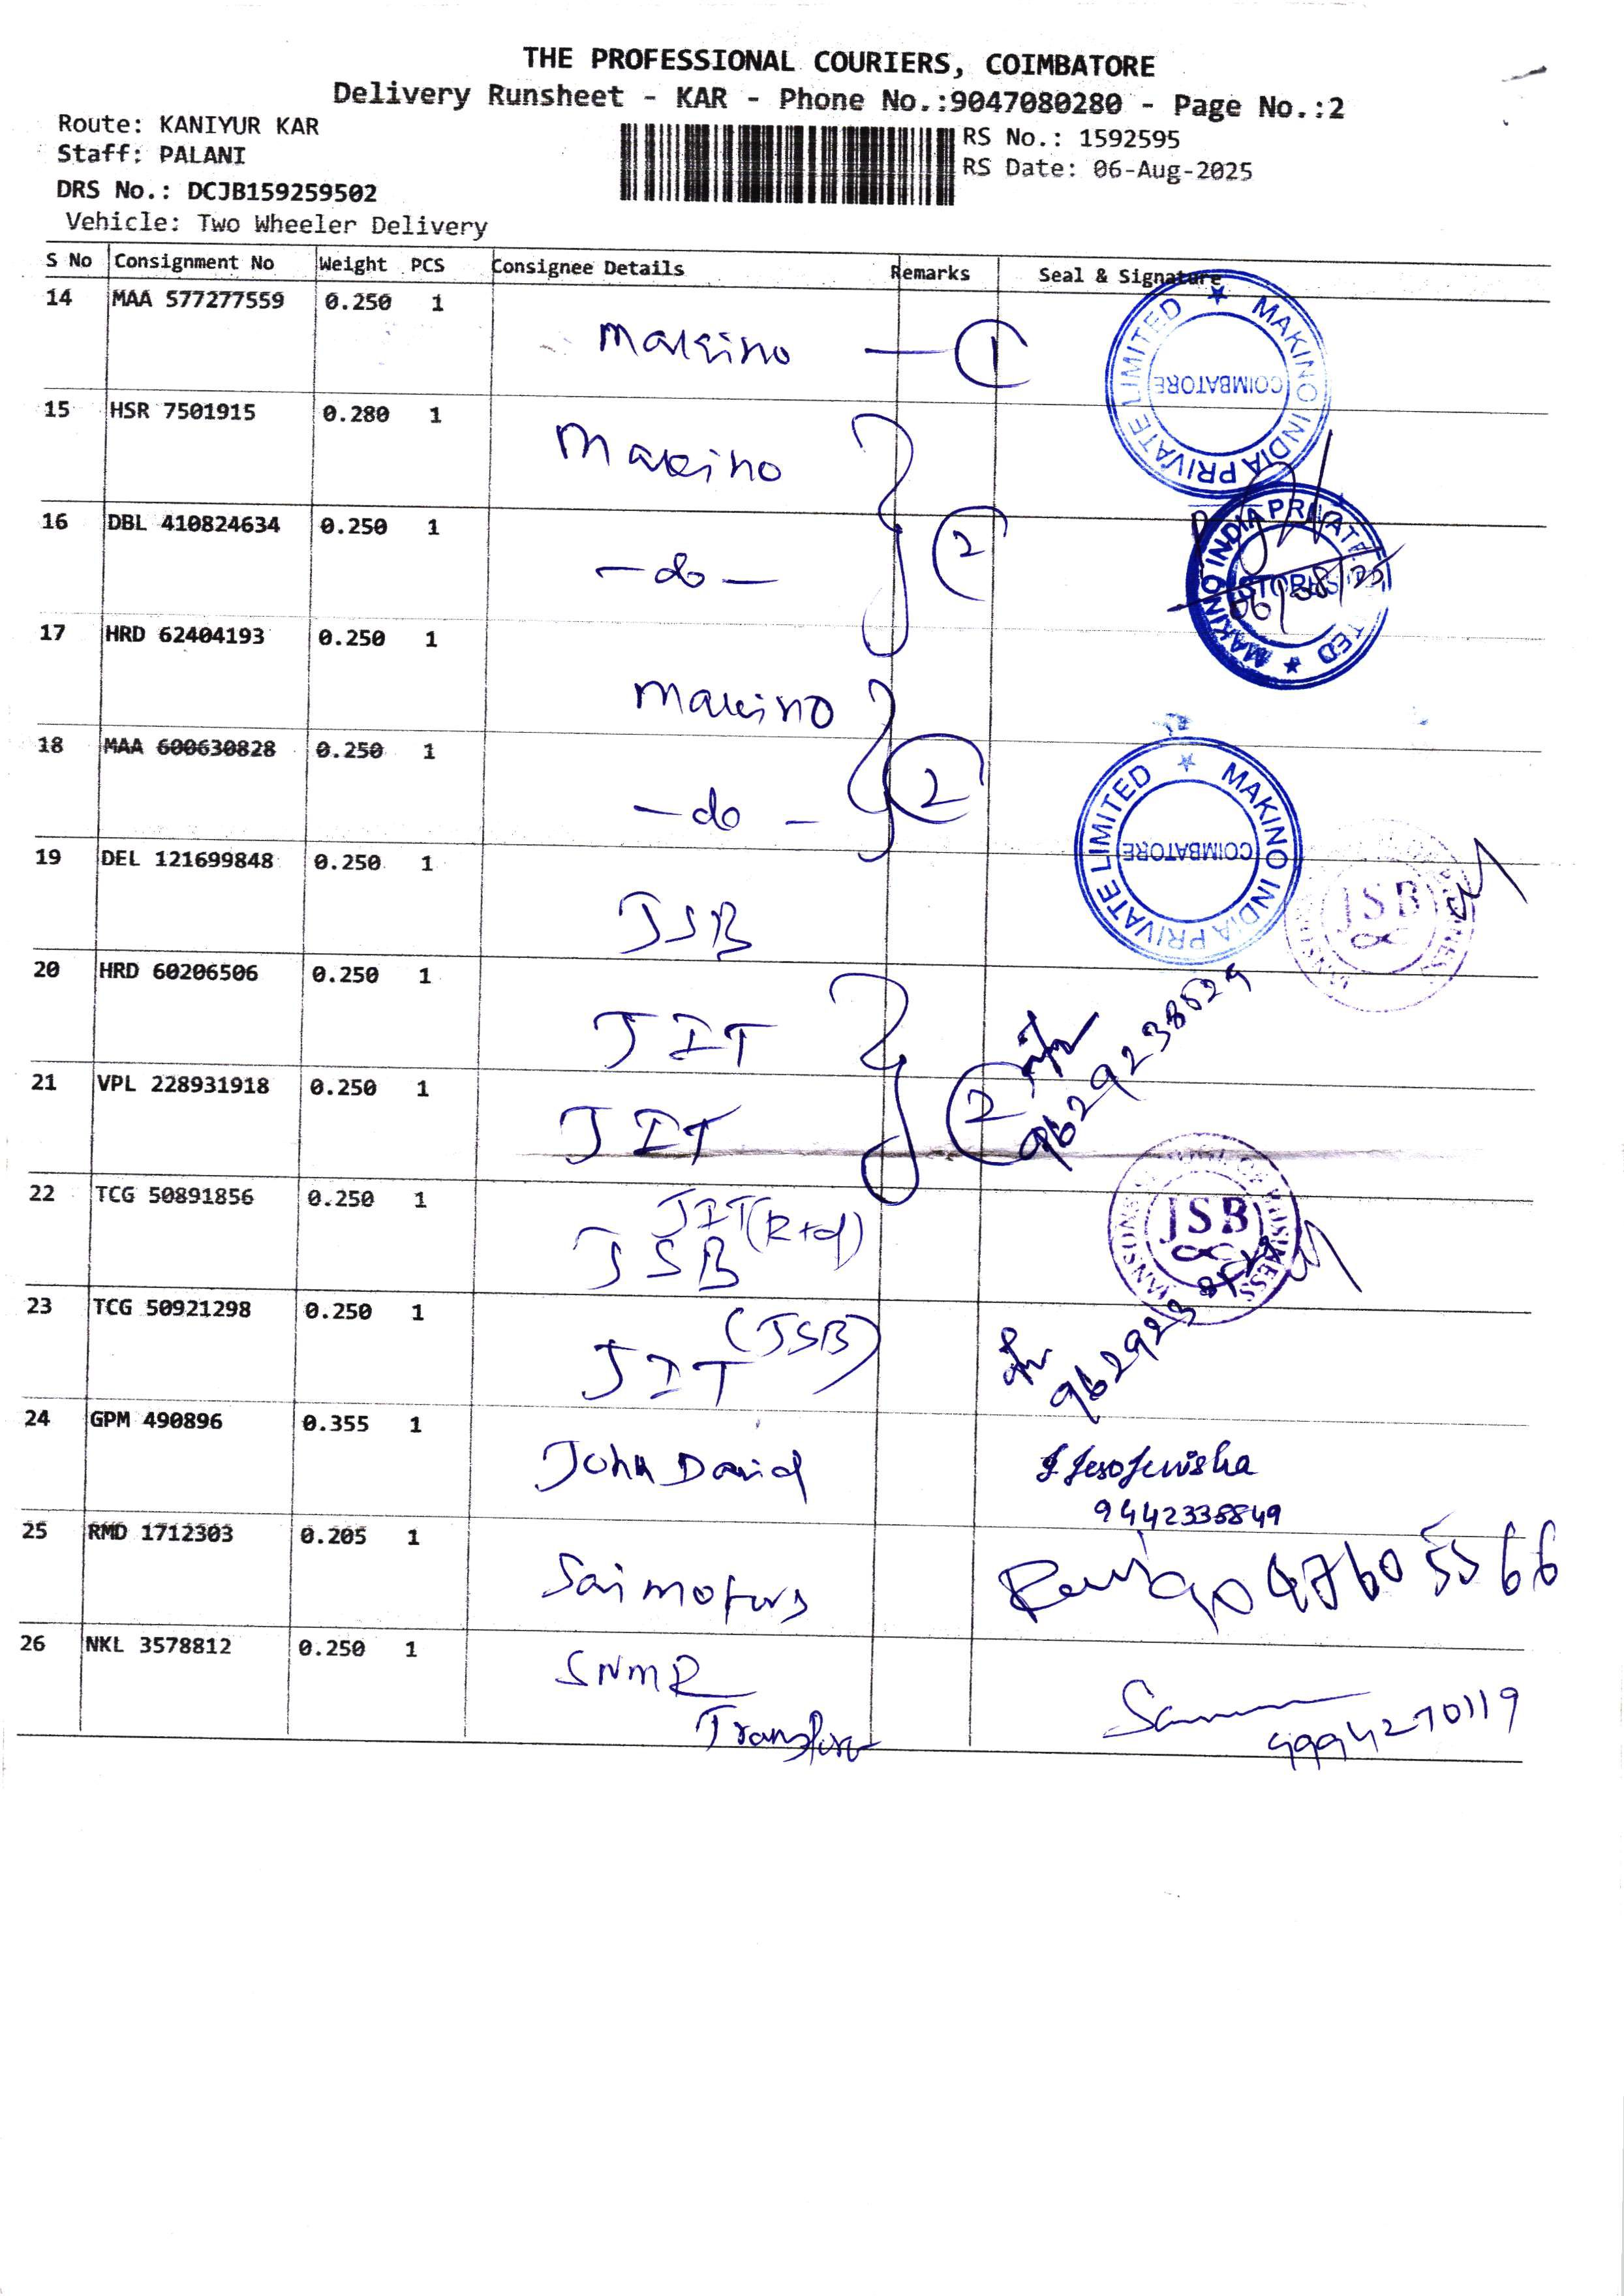 THE PROFESSIONAL COURIERS, COIMBATORE
Delivery Runsheet - KAR - Phone No.:9047080280 - Page No.:2
Route: KANIYUR KAR
Staff: PALANI
DRS No.: DCJB159259502
Vehicle: Two Wheeler Delivery
RS No.: 1592595
RS Date: 06-Aug-2025
S No Consignment No Weight PCS Consignee Details Remarks Seal & Signature
14 MAA 577277559 0.250 1
Makino — 1
MAKINO INDIA PRIVATE LIMITED
COIMBATORE
15 HSR 7501915 0.280 1
Makino
16 DBL 410824634 0.250 1
- do - 2
MAKINO INDIA PRIVATE LIMITED
STORES
06/08/25
17 HRD 62404193 0.250 1
Makino
18 MAA 600630828 0.250 1
- do - 2
MAKINO INDIA PRIVATE LIMITED
COIMBATORE
19 DEL 121699848 0.250 1
JSB
JSB
20 HRD 60206506 0.250 1
JIT
21 VPL 228931918 0.250 1
JIT 2
9629238529
22 TCG 50891856 0.250 1
JIT (R+d)
JSB
JSB
23 TCG 50921298 0.250 1
(JSB)
JIT
24 GPM 490896 0.355 1
John David
9442335849
25 RMD 1712303 0.205 1
Sai motors
Ravi 9047605566
26 NKL 3578812 0.250 1
SNMR
9994270119